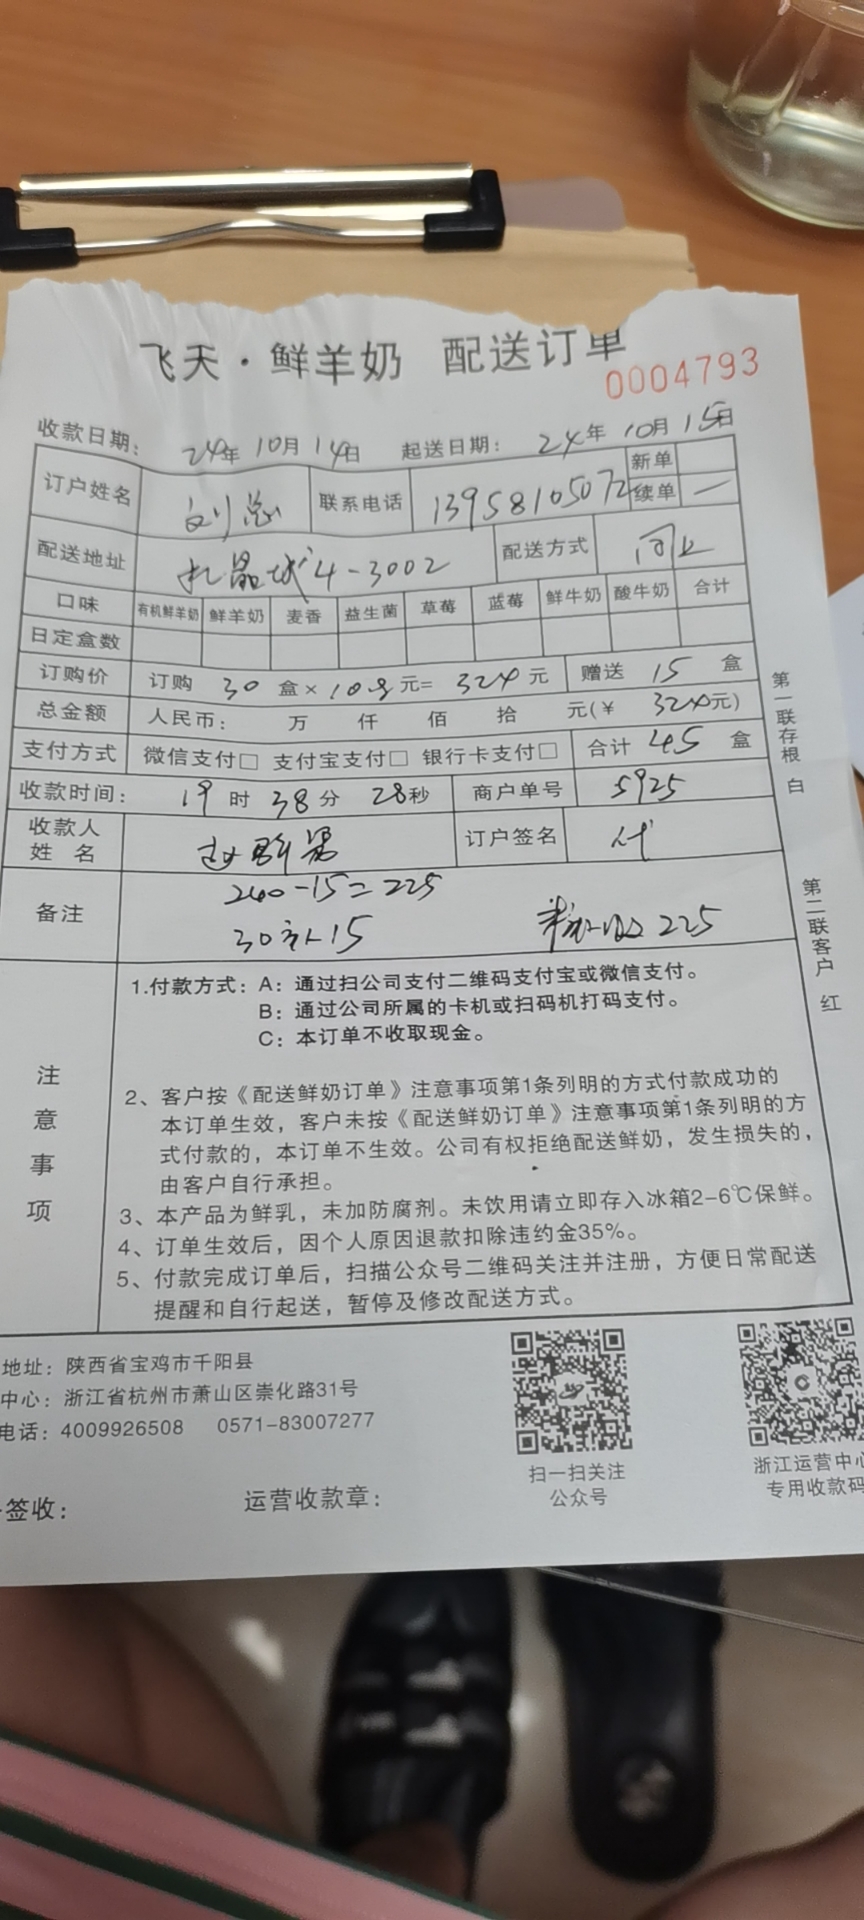 飞天·鲜羊奶 配送订单
0004793
收款日期: 24年 10月 14日 起送日期: 24年 10月 15日
订户姓名 刘总 联系电话 13958105072 新单
续单 一
配送地址 4-3002 配送方式
口味 有机鲜羊奶 鲜羊奶 麦香 益生菌 草莓 蓝莓 鲜牛奶 酸牛奶 合计
日定盒数
订购价 订购 30 盒× 10.8 元= 324 元 赠送 15 盒
总金额 人民币: 万 仟 佰 拾 元(¥ 324元)
支付方式 微信支付□ 支付宝支付□ 银行卡支付□ 合计 45 盒
收款时间: 19 时 38分 28秒 商户单号 5925
收款人
姓 名 订户签名 代
备注 240-15=225
30 15 225
注意事项
1.付款方式: A: 通过扫公司支付二维码支付宝或微信支付。
B: 通过公司所属的卡机或扫码机打码支付。
C: 本订单不收取现金。
2、客户按《配送鲜奶订单》注意事项第1条列明的方式付款成功的
本订单生效，客户未按《配送鲜奶订单》注意事项第1条列明的方
式付款的，本订单不生效。公司有权拒绝配送鲜奶，发生损失的，
由客户自行承担。
3、本产品为鲜乳，未加防腐剂。未饮用请立即存入冰箱2-6℃保鲜。
4、订单生效后，因个人原因退款扣除违约金35%。
5、付款完成订单后，扫描公众号二维码关注并注册，方便日常配送
提醒和自行起送，暂停及修改配送方式。
第一联存根 白
第二联客户 红
地址: 陕西省宝鸡市千阳县
中心: 浙江省杭州市萧山区崇化路31号
电话: 4009926508 0571-83007277
扫一扫关注
公众号
浙江运营中心
专用收款码
签收: 运营收款章: